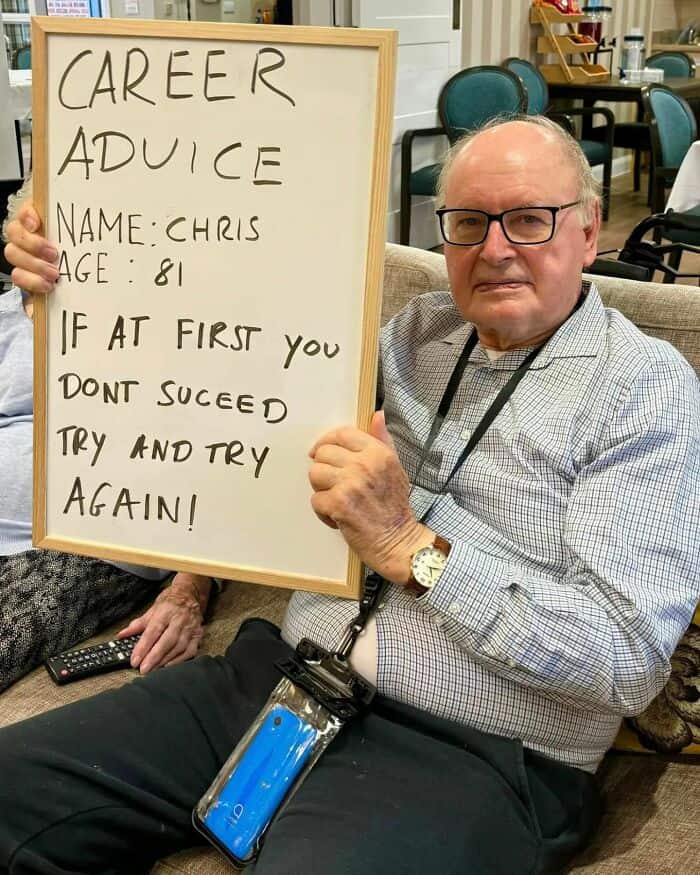 CAREER
ADVICE
NAME: CHRIS
AGE : 81
IF AT FIRST YOU
DONT SUCEED
TRY AND TRY
AGAIN!